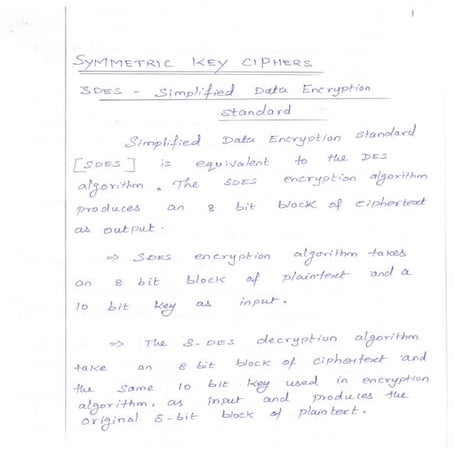 1
SYMMETRIC KEY CIPHERS
SDES - Simplified Data Encryption
Standard
Simplified Data Encryption Standard
[SDES] is equivalent to the DES
algorithm. The SDES encryption algorithm
produces an 8 bit block of ciphertext
as output.
⇒ SDES encryption algorithm takes
an 8 bit block of plaintext and a
10 bit key as input.
⇒ The S-DES decryption algorithm
take an 8 bit block of ciphertext and
the same 10 bit key used in encryption
algorithm, as input and produces the
original 8-bit block of plaintext.